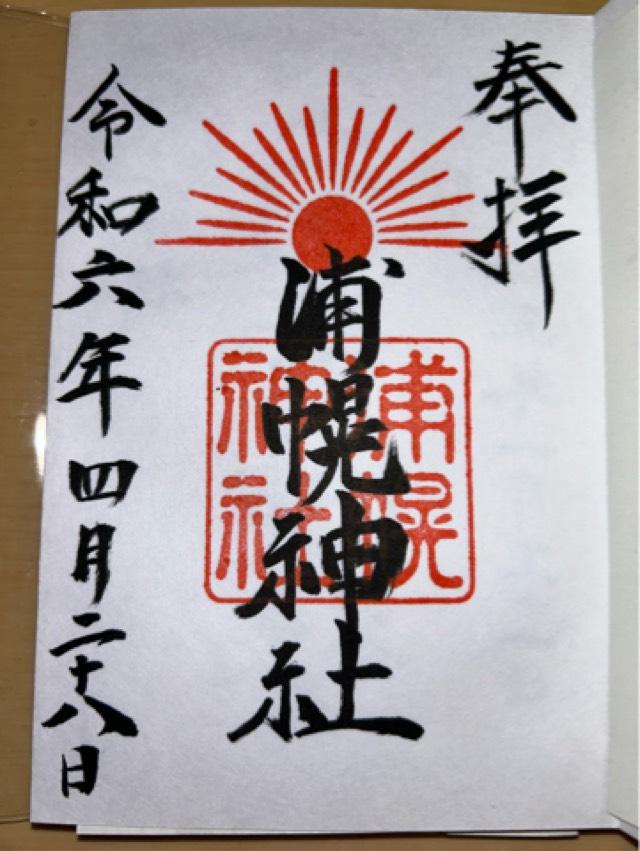 奉拝
浦幌神社
浦幌
神社
令和六年四月二十八日